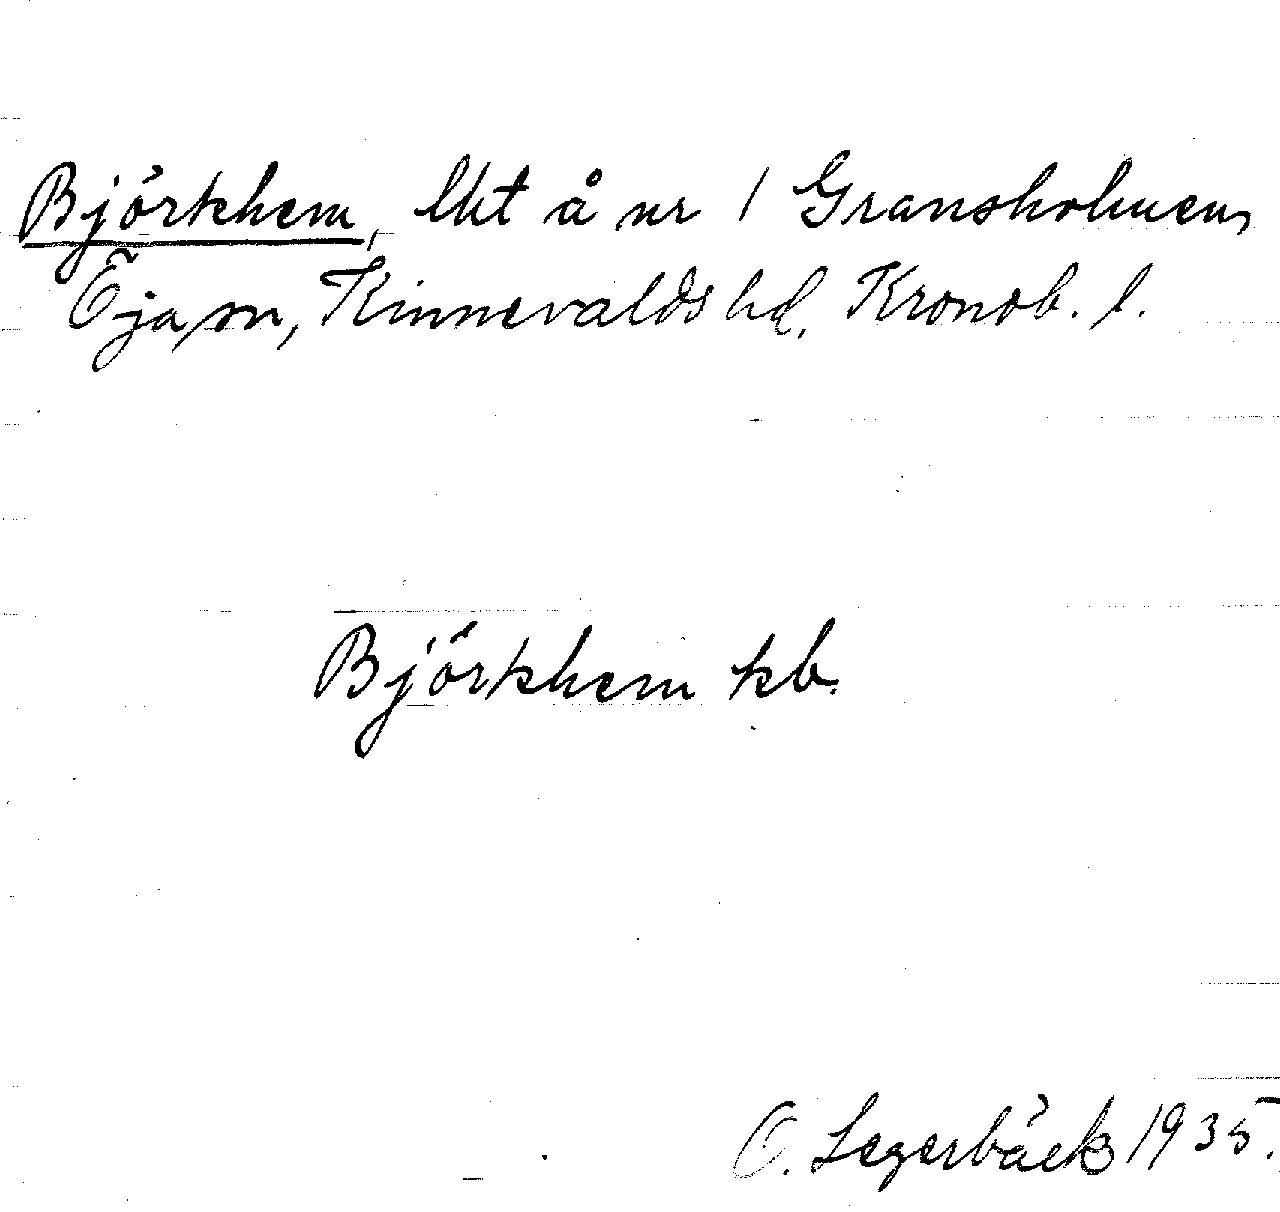 Björkhem, lht å nr 1 Gransholmen,
Öja sn, Kinnevalds hd, Kronob. l.
Björkhem kb.
O. Legerbäck 1935.